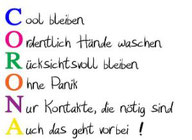 Cool bleiben
Ordentlich Hände waschen
Rücksichtsvoll bleiben
Ohne Panik
Nur Kontakte, die nötig sind
Auch das geht vorbei !